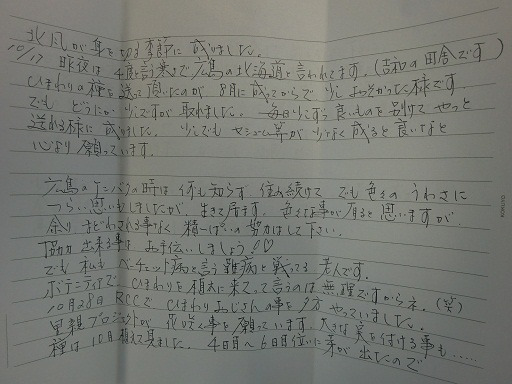 北風が身を切る季節に成りました。
10/17 昨夜は4度と言う寒さで広島の北海道と言われてます。(吉和の田舎です)
ひまわりの種を送って頂いたのが8月に成ってからで少しおそかった様です。
でもどうにか少しですが取れました。毎日少しずつ良いものを別けてやっと
送れる様に成りました。少しでもセシューム等が少なく成ると良いなと
心より願っています。
広島のゲンバクの時は何も知らず住み続けて でも色々のうわさに
つらい思いもしましたが、生きて居ます。色々な事が有ると思いますが
余りまどわされる事なく精一ぱいの努力はして下さい。
協力出来る事はお手伝いしましょう!♡
でも私もベーチェット病と言う難病と戦ってる老人です。
ボランティアでひまわりを植えに来てって言うのは無理ですからネ。(笑)
10月28日RCCでひまわりおじさんの事を夕方やっていました。
里親プロジェクトが花咲く事を願っています。大きな実を付ける事も……
種は10月植えて見ました。4日目~6日目位に芽が出たので